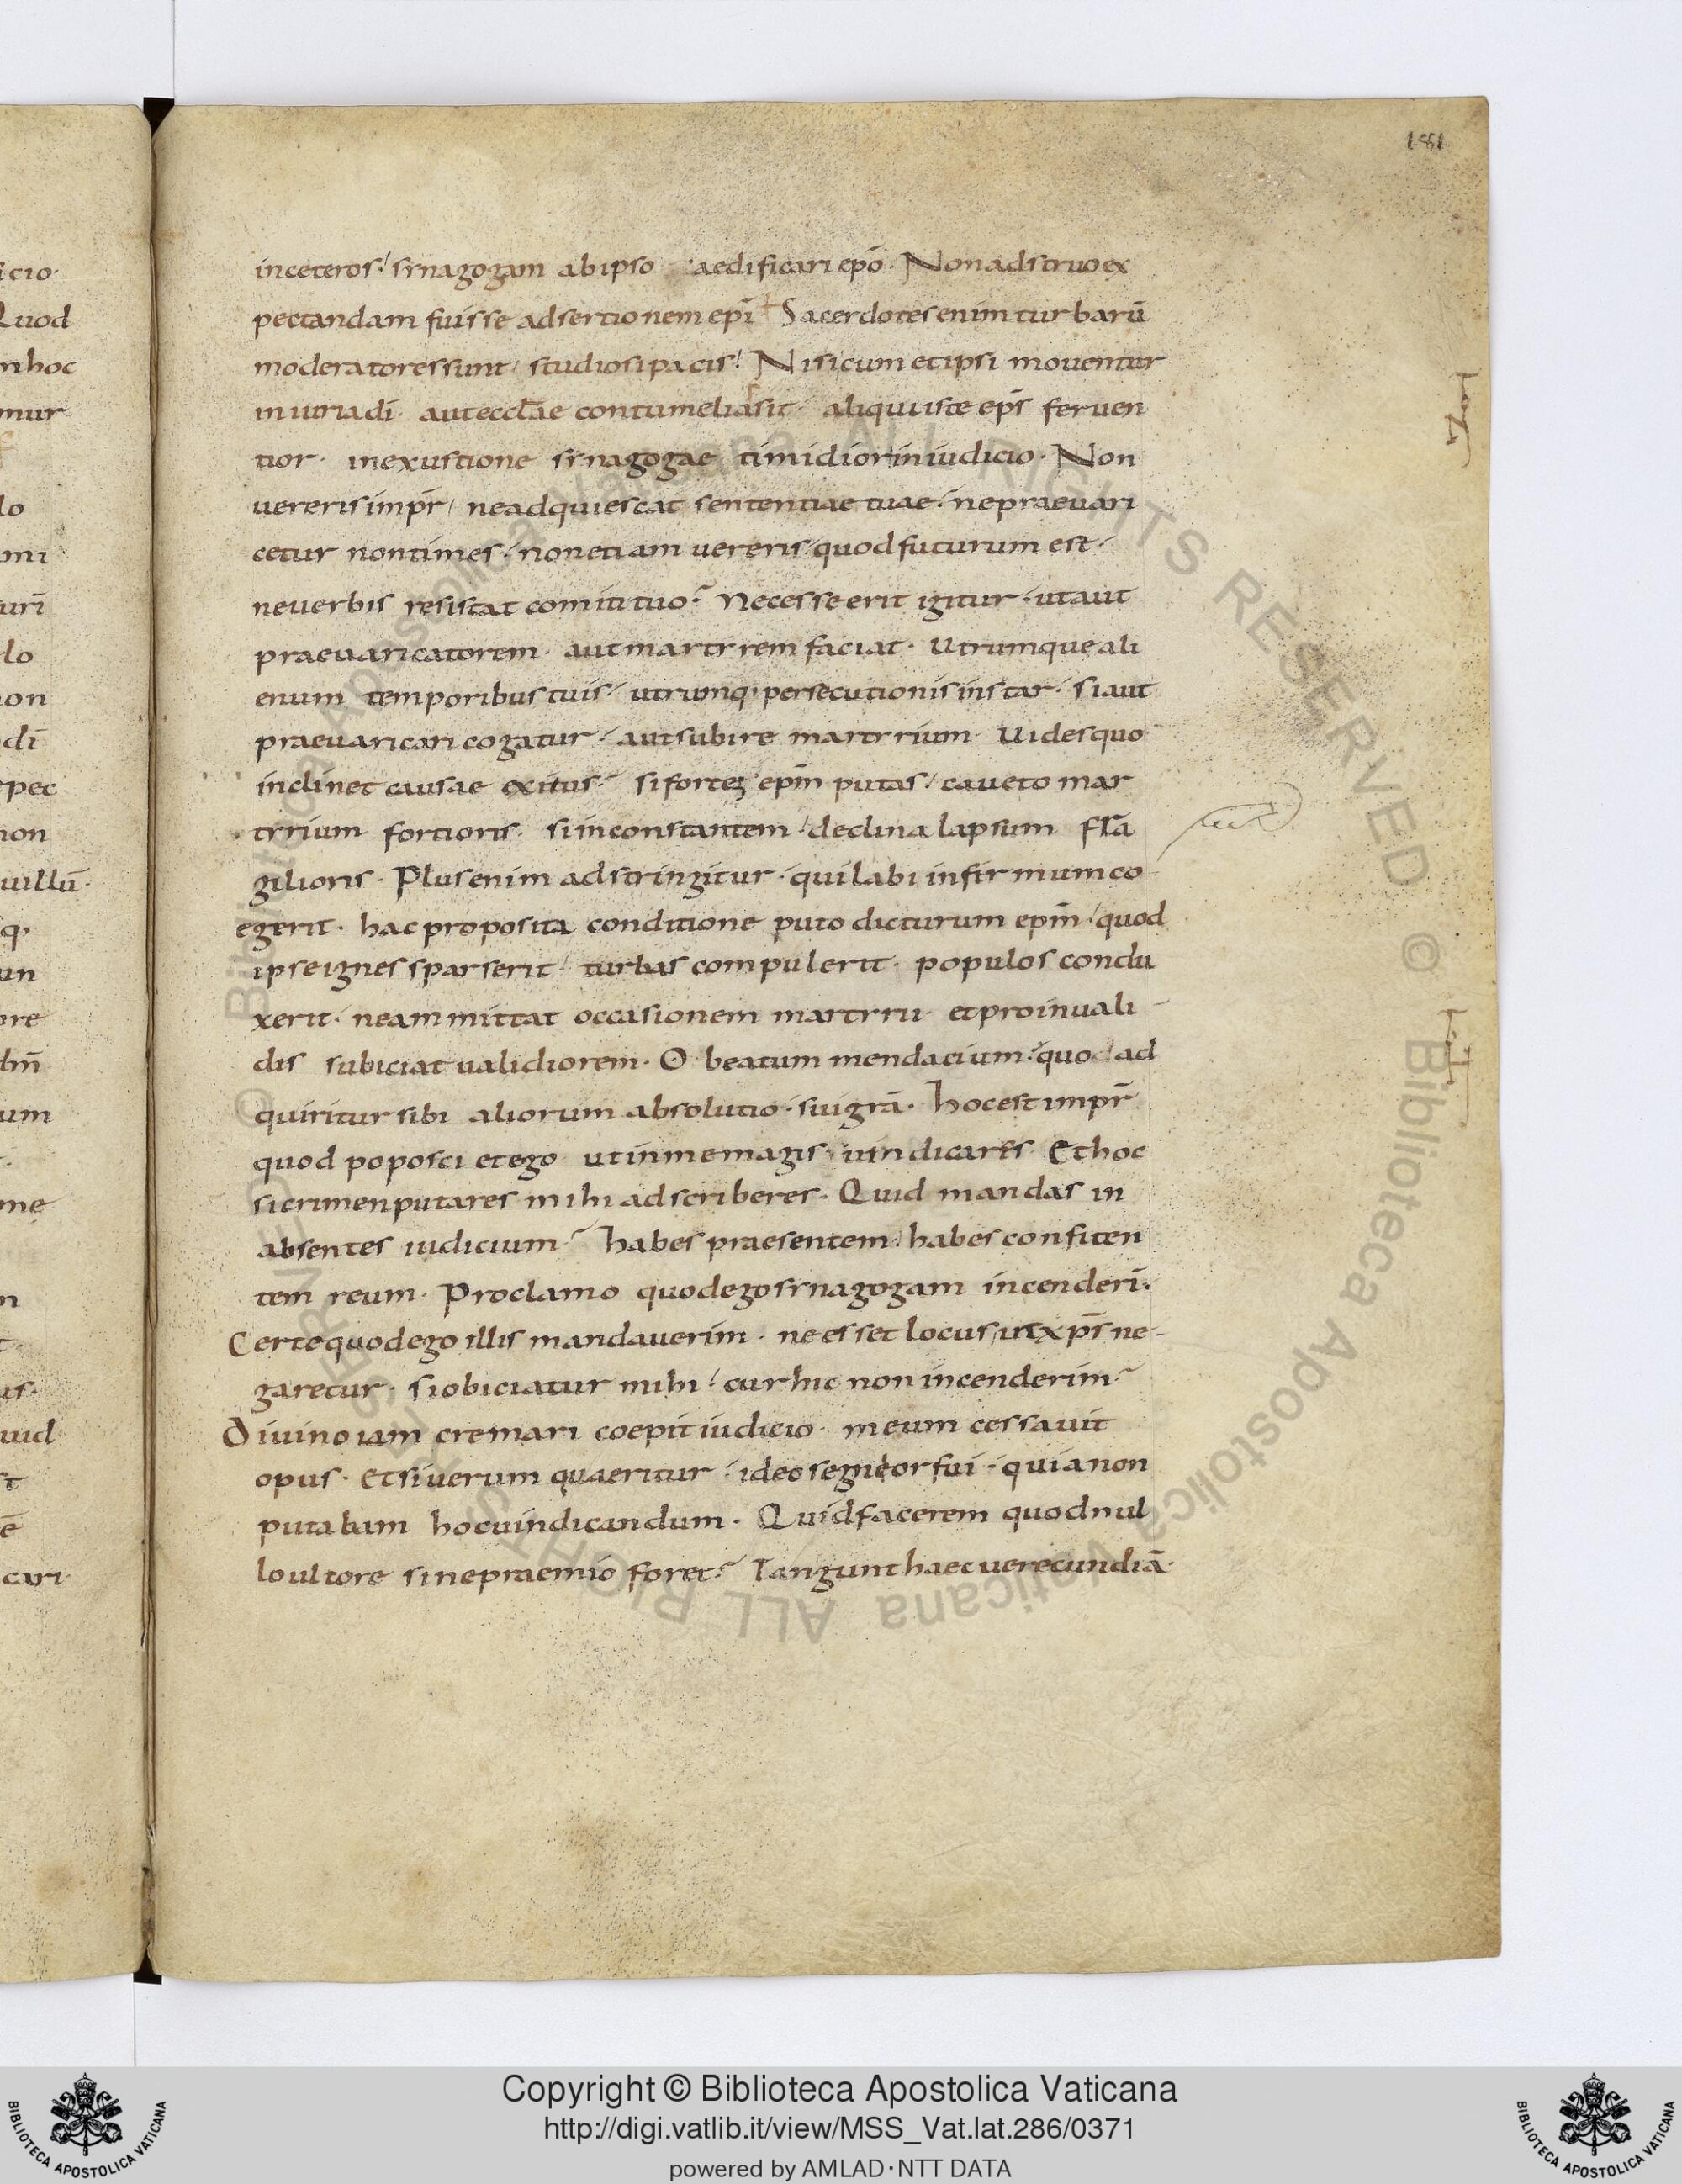 181
in ceteros synagogam ab ipso aedificari epō. Non adstruo ex
pectandam fuisse adsertionem epī Sacerdotes enim turbarū
moderatores sunt studiosi pacis. Nisi cum et ipsi moventur
iniuria dī. aut ecclae contumelia sit. aliqui iste eps ferven
tior. in exustione synagogae timidior in iudicio. Non
vereris impr ne adquiescat sententiae tuae. ne praevari
cetur non times. non etiam vereris quod futurum est.
ne verbis resistat comiti tuo? Necesse erit igitur. ut aut
praevaricatorem. aut martyrem faciat. Utrumque ali
enum temporibus tuis. utrumq; persecutionis instar. si aut
praevaricari cogatur. aut subire martyrium. Uides quo
inclinet causae exitus. si forte epm putas. caveto mar
tyrium fortioris. si inconstantem. declina lapsum fra
gilioris. Plus enim adstringitur. qui labi infirmum co
egerit. hac proposita conditione puto dicturum epm. quod
ipse ignes sparserit. turbas compulerit. populos condu
xerit. ne ammittat occasionem martyrii. et pro inuali
dis subiciat validiorem. O beatum mendacium. quo ad
quiritur sibi aliorum absolutio. sui grā. hoc est impr
quod poposci et ego ut in me magis vindicares. Et hoc
si crimen putares mihi adscriberes. Quid mandas in
absentes iudicium? habes praesentem. habes confiten
tem reum. Proclamo quod ego synagogam incenderi.
Certe quod ego illis mandaverim. ne esset locus in xps ne
garetur. si obiciatur mihi. cur hic non incenderim?
Divino iam cremari coepit iudicio. meum cessavit
opus. Et si verum quaeritur. ideo segnior fui. quia non
putabam hoc vindicandum. Quid facerem quod nul
lo ultore sine praemio foret? Tangunt haec verecundiā.
icio.
Quod
nhoc
mur
lo
mi
lo
non
di
pec
non
q;
un
ore
dm̄
um
me
n
us.
uid
st
ē
cari.
© Biblioteca Apostolica Vaticana ALL RIGHTS RESERVED
BIBLIOTECA APOSTOLICA VATICANA
Copyright © Biblioteca Apostolica Vaticana
http://digi.vatlib.it/view/MSS_Vat.lat.286/0371
powered by AMLAD·NTT DATA
BIBLIOTECA APOSTOLICA VATICANA